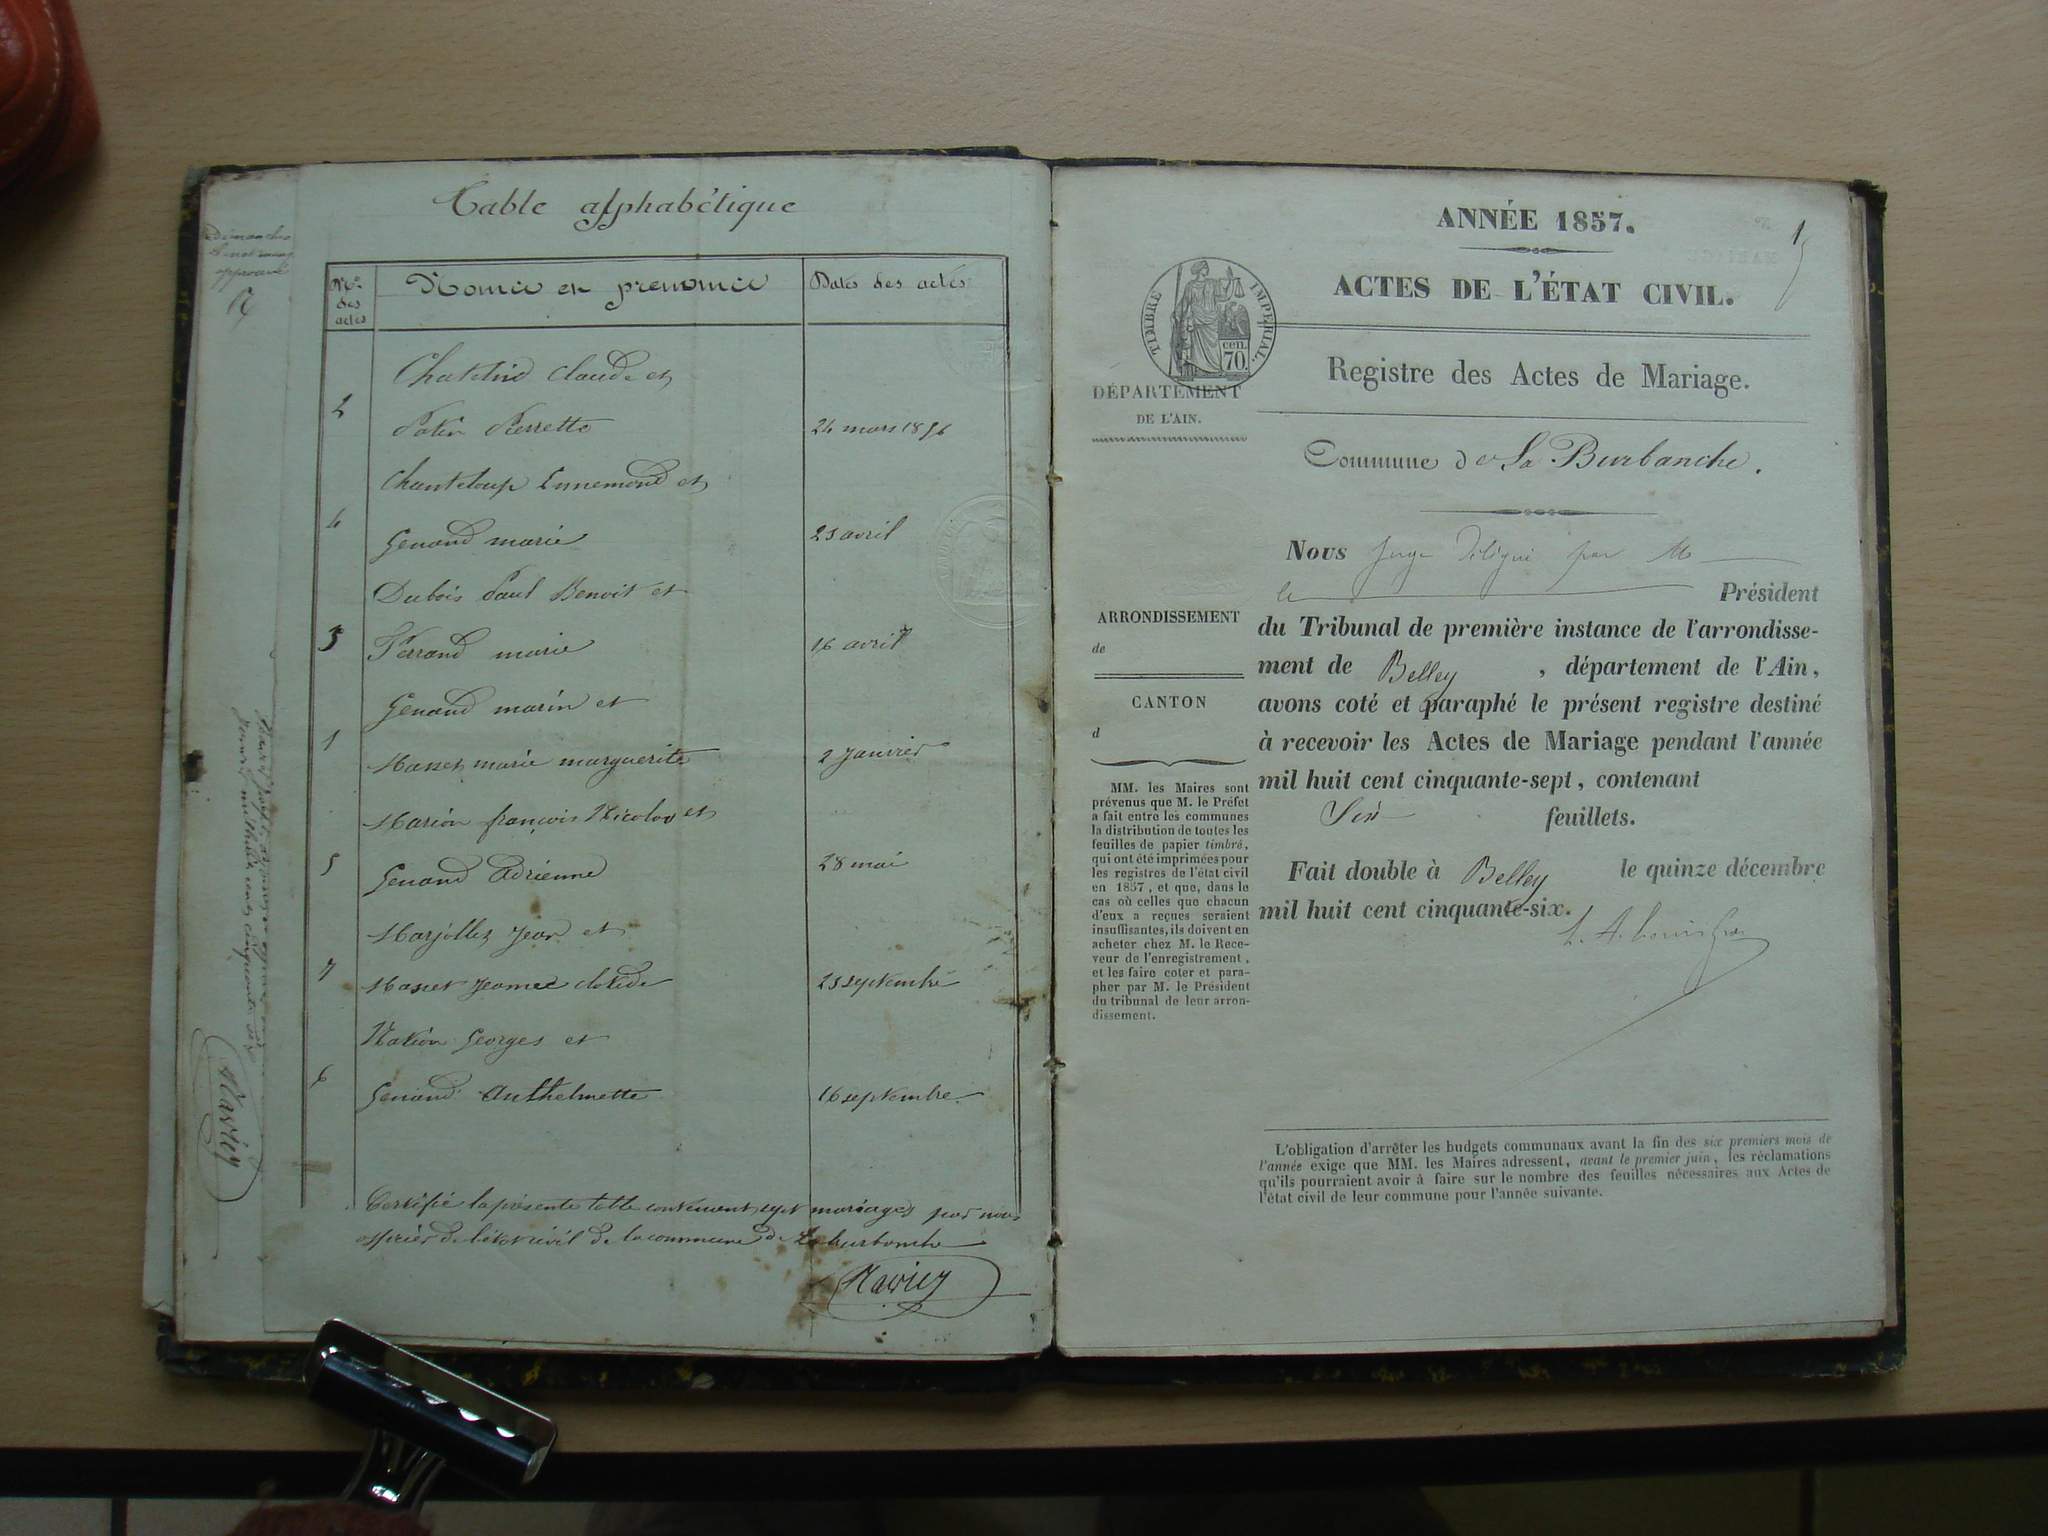 Table alphabétique
Nos des actes
Noms et prenoms
Dates des actes
Claude et
2
Pierrette
24 mars 1856
Chanteloup Ennemond et
4
Genand marie
25 avril
Dubois Paul Benoit et
3
Ferrand marie
16 avril
Genand marin et
1
Masset marie marguerite
2 Janvier
Marion françois Nicolas et
5
Genand Adrienne
28 mai
Marjollet Jean et
7
Masset Jeanne clotide
25 septembre
Nation Georges et
6
Genand Anthelmette
16 septembre
Certifié la présente table contenant sept mariages par nous
officier de l'état civil de la commune de Laburbanche
ANNÉE 1857.
1
ACTES DE L'ÉTAT CIVIL.
TIMBRE IMPERIAL.
CEN. 70.
Registre des Actes de Mariage.
DÉPARTEMENT
DE L'AIN.
Commune de La Burbanche.
Nous Juge Délégué par M
le Président
ARRONDISSEMENT
de
CANTON
d
du Tribunal de première instance de l'arrondisse-
ment de Belley, département de l'Ain,
avons coté et paraphé le présent registre destiné
à recevoir les Actes de Mariage pendant l'année
mil huit cent cinquante-sept, contenant
Six feuillets.
Fait double à Belley le quinze décembre
mil huit cent cinquante-six.
MM. les Maires sont
prévenus que M. le Préfet
a fait entre les communes
la distribution de toutes les
feuilles de papier timbré,
qui ont été imprimées pour
les registres de l'état civil
en 1857, et que, dans le
cas où celles que chacun
d'eux a reçues seraient
insuffisantes, ils doivent en
acheter chez M. le Rece-
veur de l'enregistrement,
et les faire coter et para-
pher par M. le Président
du tribunal de leur arron-
dissement.
L'obligation d'arrêter les budgets communaux avant la fin des six premiers mois de
l'année exige que MM. les Maires adressent, avant le premier juin, les réclamations
qu'ils pourraient avoir à faire sur le nombre des feuilles nécessaires aux Actes de
l'état civil de leur commune pour l'année suivante.